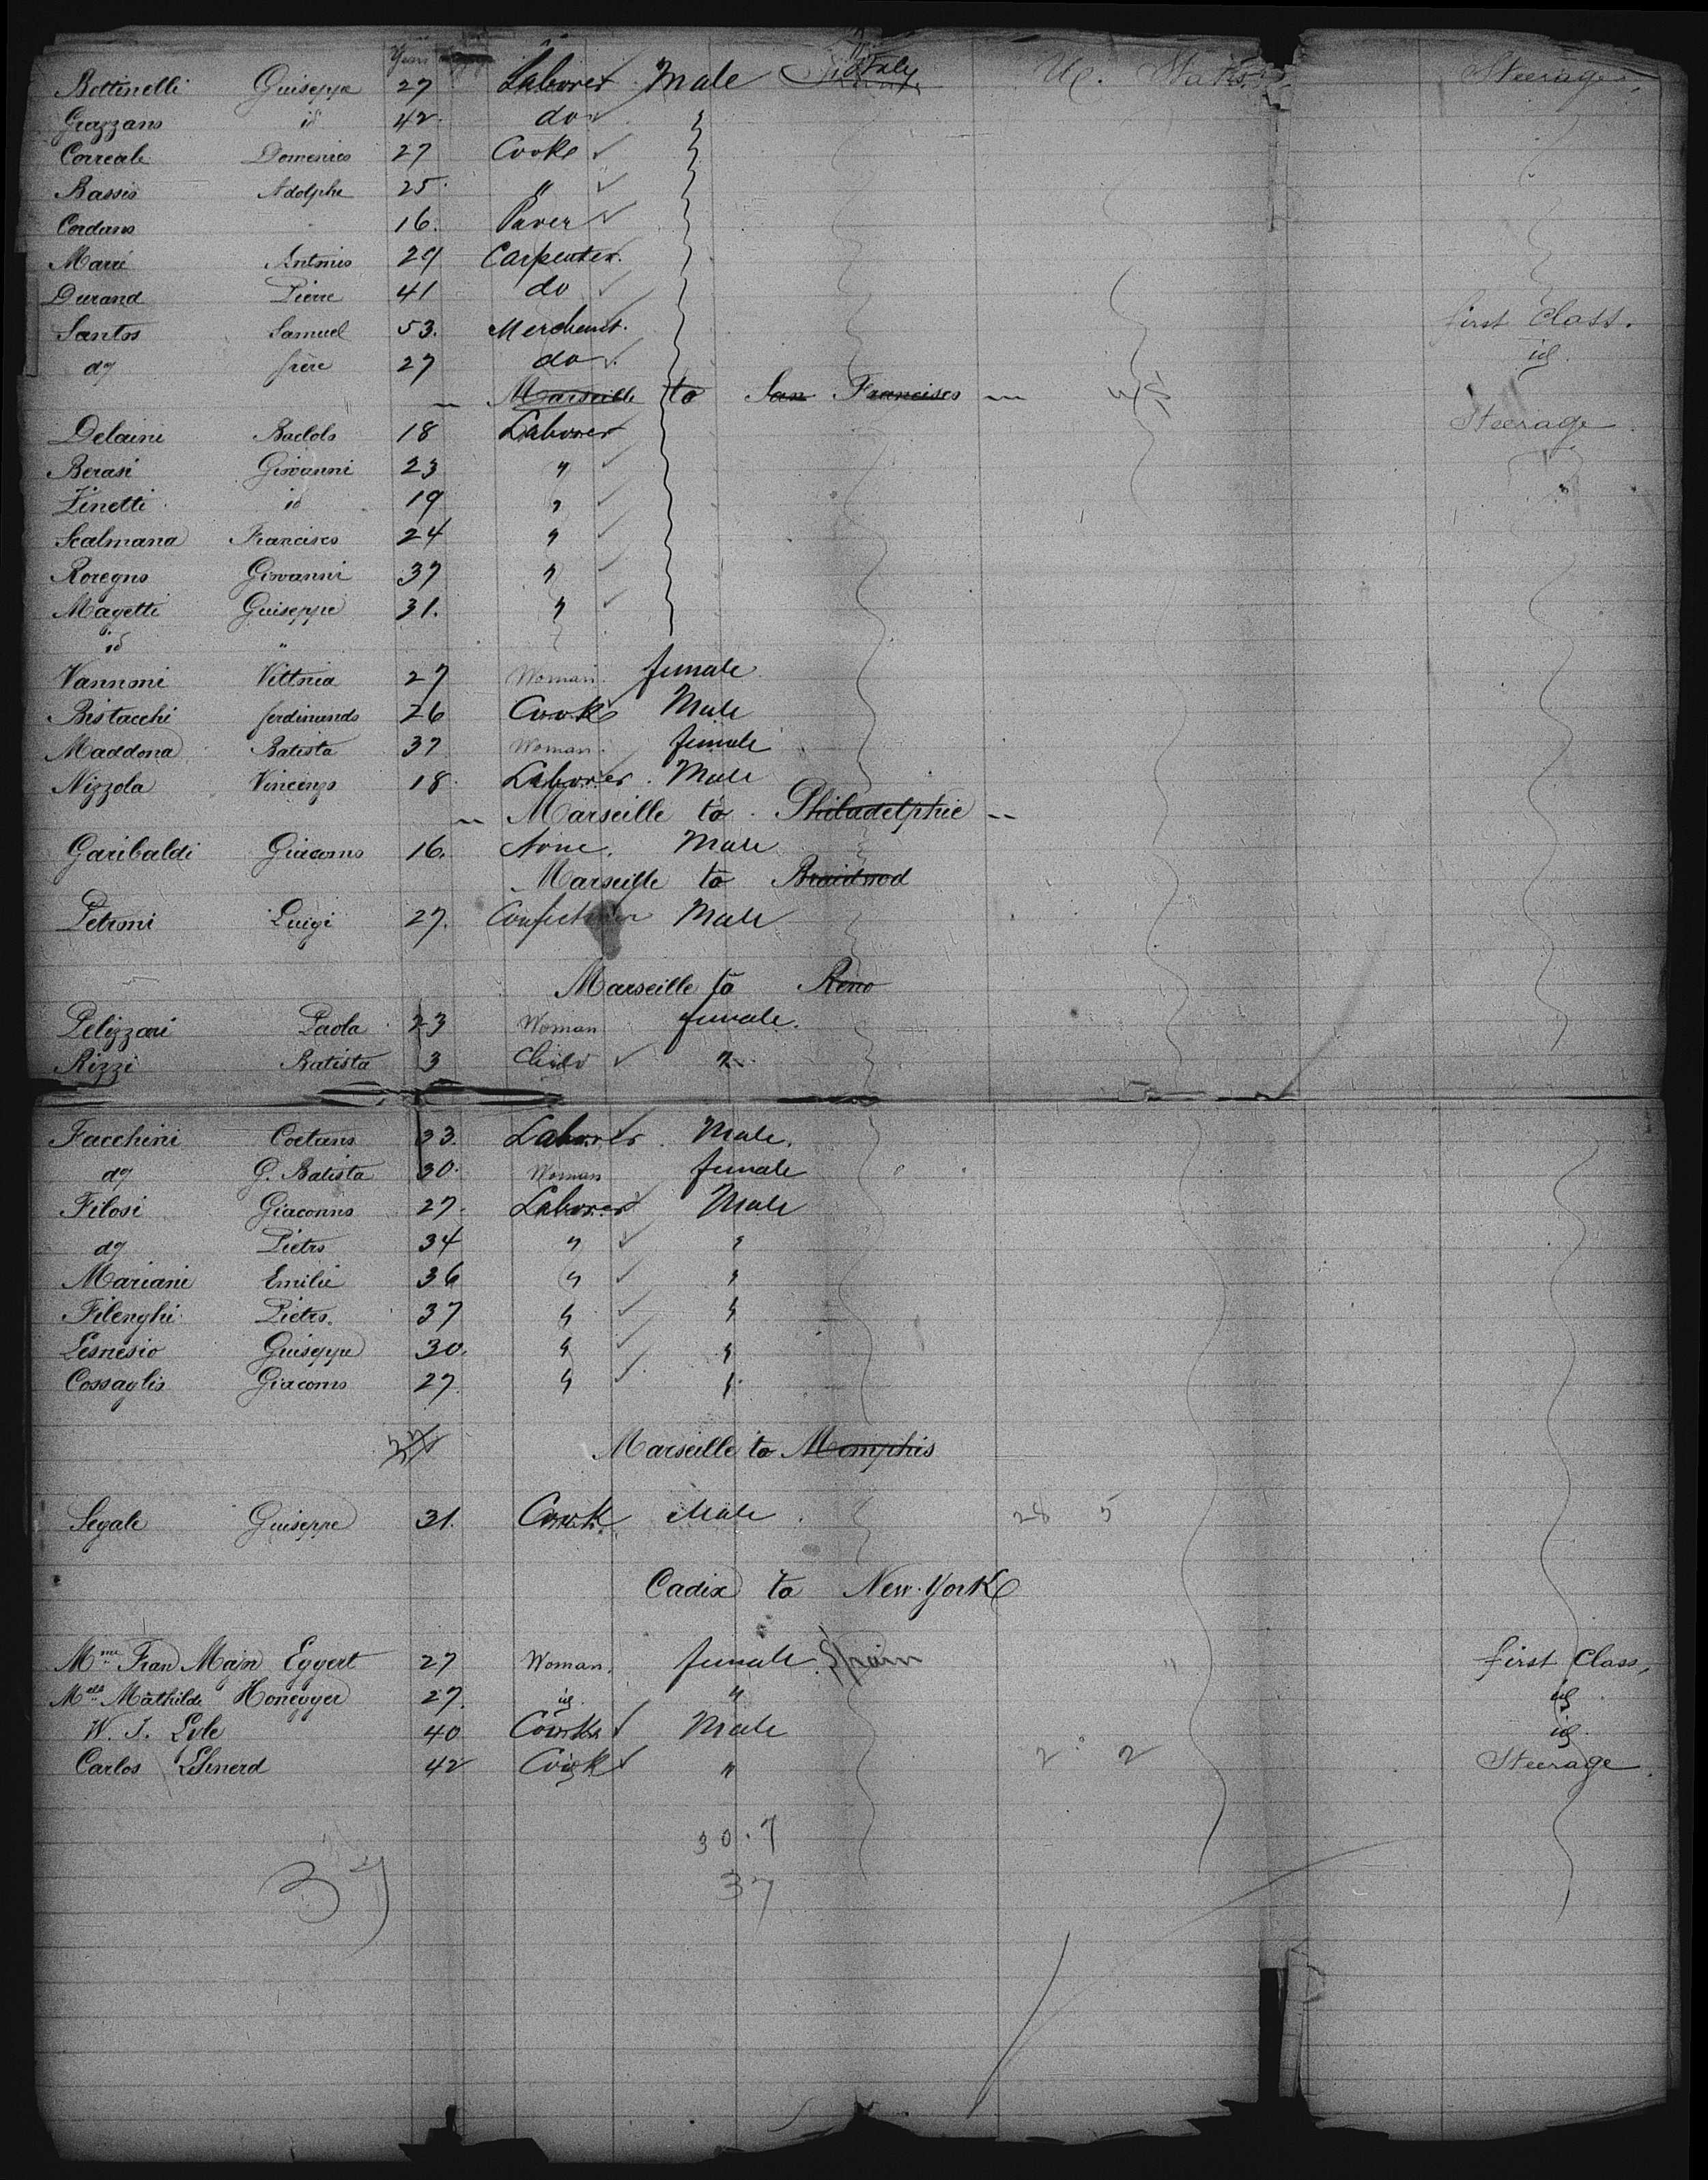 Years
Bottinelli Guiseppe 27 Laborer Male Italy U. States Steerage
Grazzano id 42 do "
Correale Domenico 27 Cooke "
Bassis Adolphe 25 " "
Cordano 16. Paver
Marré Antonio 29 Carpenter.
Durand Pierre 41 do
Santos Samuel 53. Merchant. first Class.
do frère 27 do id.
Marseille to San Francisco
Delaini 18 Laborer Steerage
Berasi Giovanni 23 "
Zinetti id 19 "
Scalmana Francisco 24 "
Roregno Giovanni 37 "
Magetti Guiseppe 31. "
id "
Vannoni Vittoria 27 Woman. female
Bistacchi ferdinando 26 Cooke Male
Maddona Batista 37 Woman. female
Nizzola Vincenzo 18. Laborer. Male
Marseille to Philadelphie
Garibaldi Giacomo 16. None. Male
Marseille to Braidwod
Petroni Luigi 27. Male
Marseille to Reno
Pelizzari Paola 23 Woman female.
Rizzi Batista 3 Child "
Facchini Coetano 33. Laborer. Male.
do G. Batista 30. Woman female
Filosi Giacomo 27. Laborer Male
do Pietro 34 " "
Mariani Emilie 36 " "
Filenghi Pietro. 37 " "
Lesnesio Guiseppe 30. " "
Cossaglio Giacomo 27. " "
Marseille to Memphis
Segale Guiseppe 31. Cook Male 28 5
Cadix to New-York
Mme Fran Majn Eggert 27 Woman. female. Spain " first Class,
Melle Mathilde Honegger 27. id. " id.
W. J. Lyle 40 Male id.
Carlos 42 Cook " 2 2 Steerage.
30.7
37 37